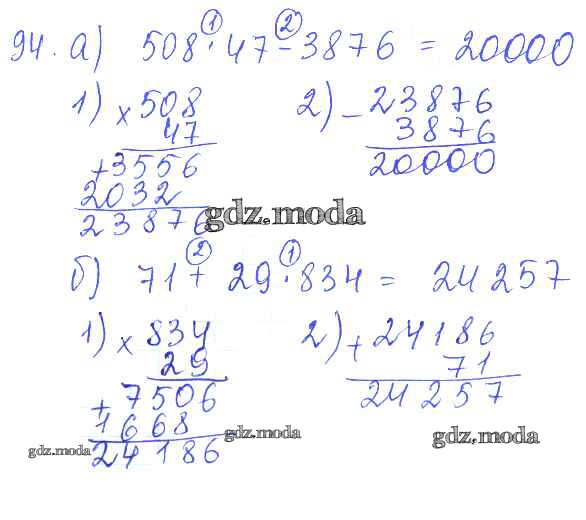 94. а) 508 · 47 - 3876 = 20000
① ②
1) × 508
47
+ 3556
2032
23876
2) - 23876
3876
20000
gdz.moda
б) 71 + 29 · 834 = 24257
② ①
1) × 834
29
+ 7506
1668
24186
2) + 24186
71
24257
gdz.moda
gdz.moda
gdz.moda